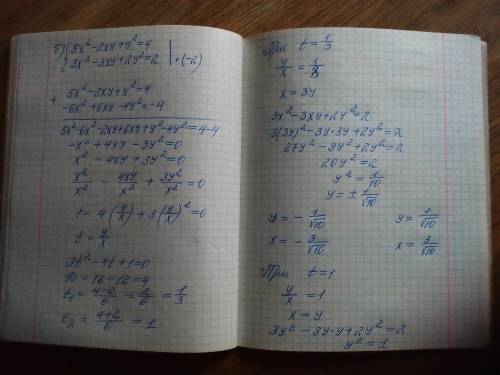 б) { 5x² - 2xy + y² = 4
3x² - 3xy + 2y² = 2 | · (-2)
+ 5x² - 2xy + y² = 4
-6x² + 6xy - 4y² = -4
5x² - 6x² - 2xy + 6xy + y² - 4y² = 4 - 4
-x² + 4xy - 3y² = 0
x² - 4xy + 3y² = 0
x²/x² - 4xy/x² + 3y²/x² = 0
1 - 4(y/x) + 3(y/x)² = 0
t = y/x
3t² - 4t + 1 = 0
D = 16 - 12 = 4
t₁ = (4-2)/6 = 2/6 = 1/3
t₂ = (4+2)/6 = 1
При t = 1/3
y/x = 1/3
x = 3y
3x² - 3xy + 2y² = 2
3(3y)² - 3y · 3y + 2y² = 2
27y² - 9y² + 2y² = 2
20y² = 2
y² = 1/10
y = ± 1/√10
y = - 1/√10 y = 1/√10
x = - 3/√10 x = 3/√10
При t = 1
y/x = 1
x = y
3y² - 3y · y + 2y² = 2
y² = 1